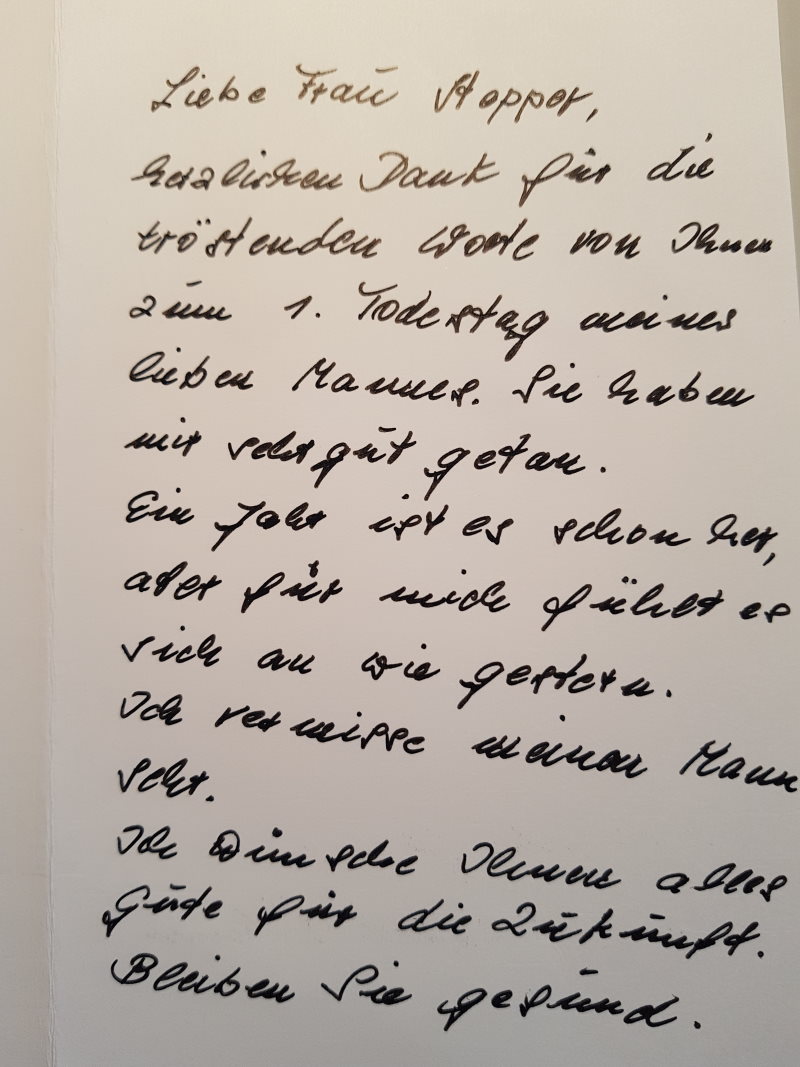 Liebe Frau Stopper,
herzlichen Dank für die
tröstenden Worte von Ihnen
zum 1. Todestag meines
lieben Mannes. Sie haben
mir sehr gut getan.
Ein Jahr ist es schon her,
aber für mich fühlt es
sich an wie gestern.
Ich vermisse meinen Mann
sehr.
Ich wünsche Ihnen alles
Gute für die Zukunft.
Bleiben Sie gesund.